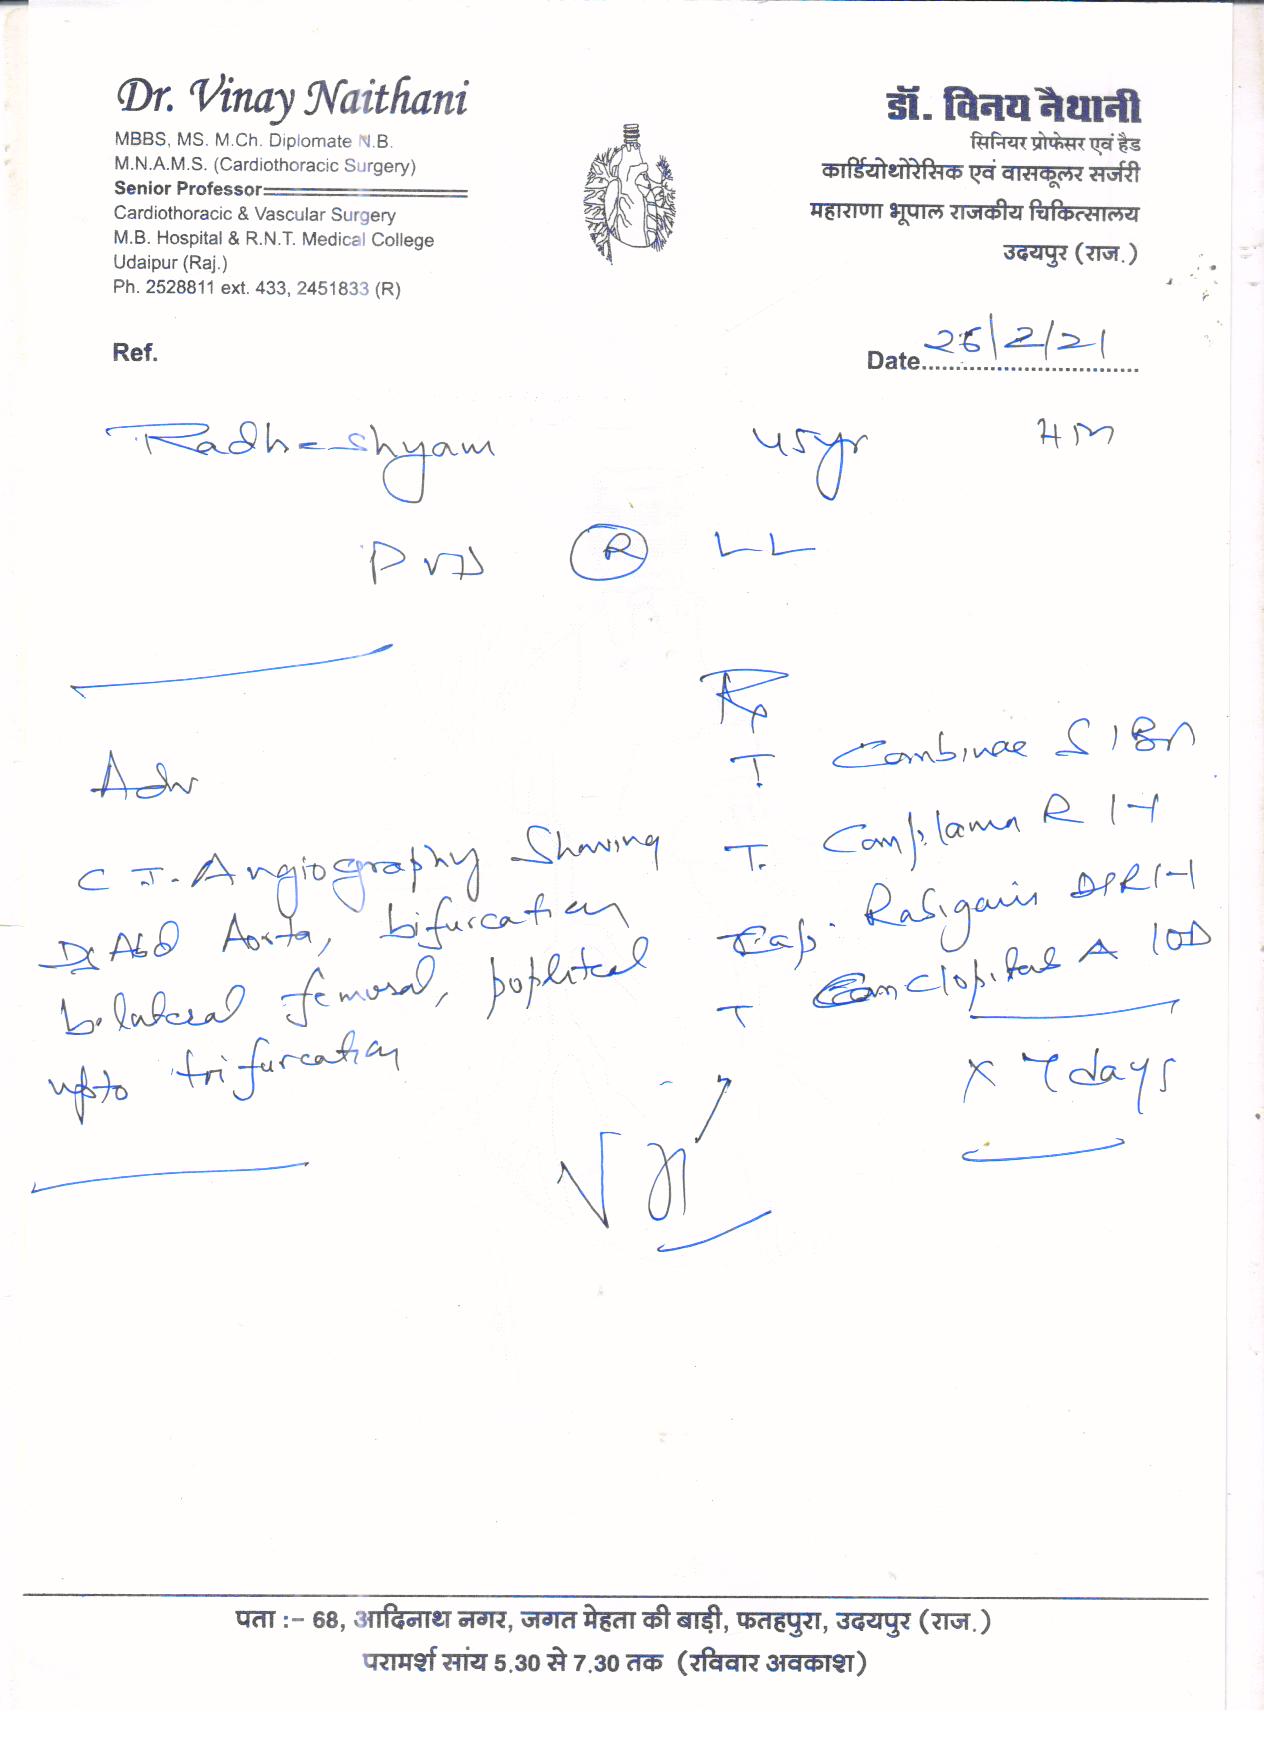 Dr. Vinay Naithani
MBBS, MS. M.Ch. Diplomate N.B.
M.N.A.M.S. (Cardiothoracic Surgery)
Senior Professor
Cardiothoracic & Vascular Surgery
M.B. Hospital & R.N.T. Medical College
Udaipur (Raj.)
Ph. 2528811 ext. 433, 2451833 (R)
डॉ. विनय नैथानी
सिनियर प्रोफेसर एवं हैड
कार्डियोथोरेसिक एवं वासकूलर सर्जरी
महाराणा भूपाल राजकीय चिकित्सालय
उदयपुर (राज.)
Ref.
Date 26/2/21
Radheshyam 45yr HM
PVD R LL
Adv
C T. Angiography Showing
Abd Aorta, bifurcation
bilateral femoral, popliteal
upto trifurcation
Rx
T.
T. R 1-1
Cap. 1-1
T A 1OD
x 7 days
पता :- 68, आदिनाथ नगर, जगत मेहता की बाड़ी, फतहपुरा, उदयपुर (राज.)
परामर्श सांय 5.30 से 7.30 तक (रविवार अवकाश)